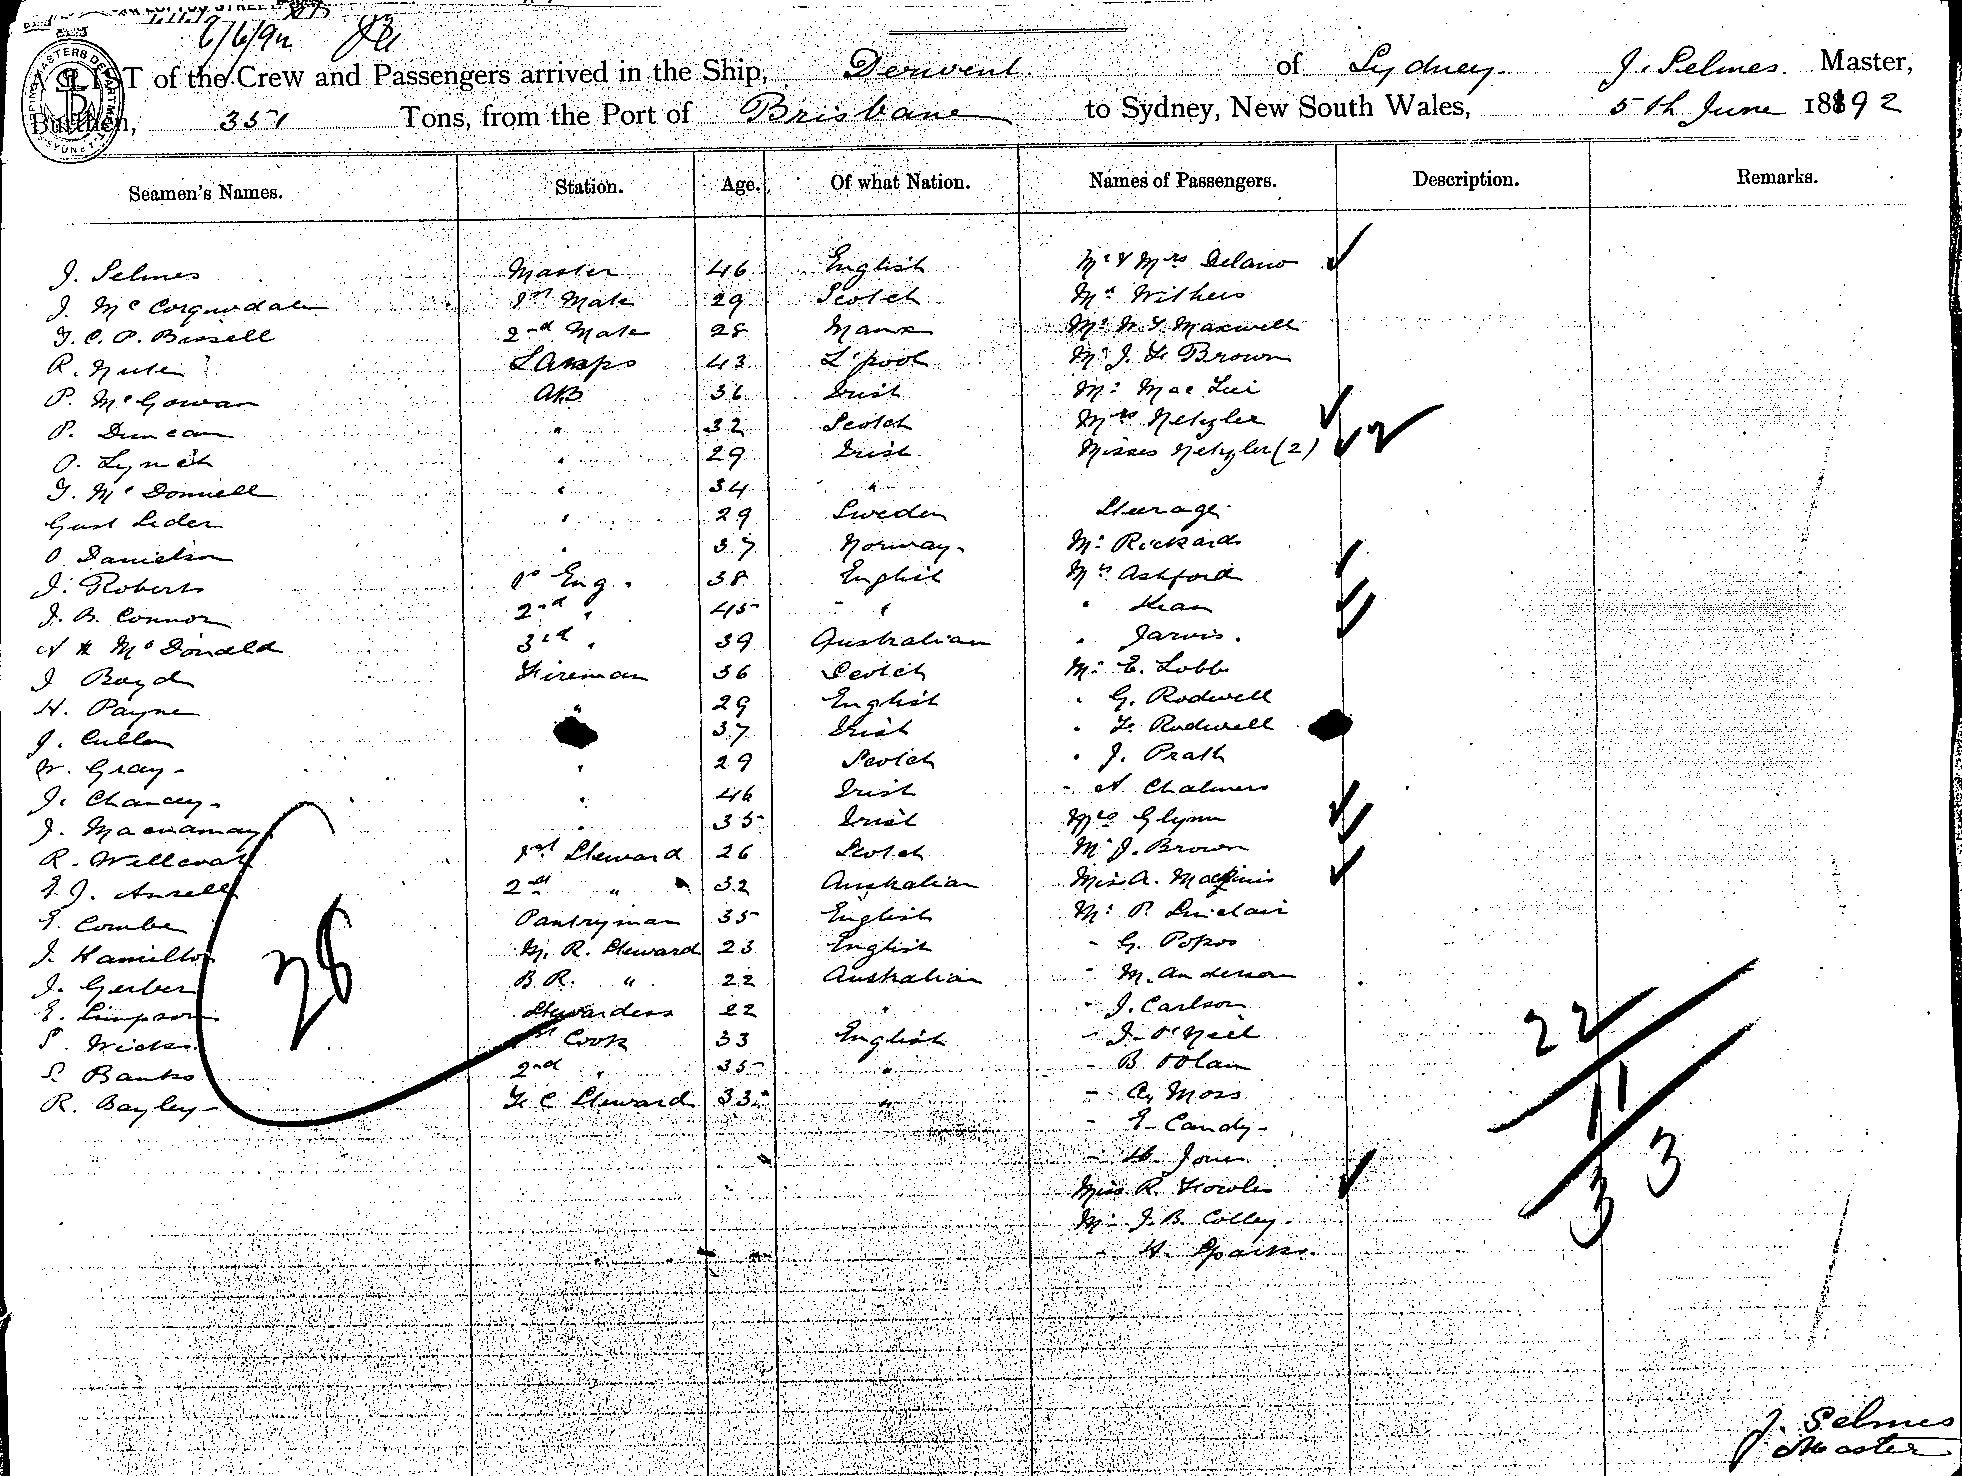 6/6/92
A LIST of the Crew and Passengers arrived in the Ship, Derwent of Sydney. J. Selmes. Master,
Burthen, 351 Tons, from the Port of Brisbane to Sydney, New South Wales, 5th June 1892
Seamen's Names. Station. Age. Of what Nation. Names of Passengers. Description. Remarks.
J. Selmes Master 46 English Mr & Mrs Delano
J. McCorquodale 1st Mate 29 Scotch Mr Withers
2nd Mate 28 Manx Maxwell
R. Lamps 43 L'pool Mr J. F. Brown
P. McGowan AB 36 Irish Mr
P. Duncan " 32 Scotch Mrs Netzler
O. Lynch " 29 Irish Misses Netzler (2) 2
McDonnell " 34 "
Gust Seder " 29 Sweden Steerage
O Danielson " 37 Norway. Mr Rickards
J. Roberts 1st Eng. 38 English Mrs Ashford
J. B. Connor 2nd " 45 " " Kean
McDonald 3rd " 39 Australian " Jarvis.
J Boyd Fireman 36 Scotch Mr E. Lobb
H. Payne " 29 English " G. Rodwell
J. Cullen 37 Irish " F. Rodwell
W. Gray " 29 Scotch " J. Prath
J. Chancey " 46 Irish " A Chalmers
J. Macnamay " 35 Irish Mrs Glynn
R. 1st Steward 26 Scotch Mr J. Brown
Ansell 2nd " 32 Australian Miss A.
E. Comber Pantryman 35 English Mr P. Sinclair
J. Hamilton M. R. Steward 23 English " G. Popos
J. Gerber B R. " 22 Australian " M. Anderson
E. Simpson Stewardess 22 " " J. Carlson
S. Wicks 1st Cook 33 English " J. O'Neil
S. Banks 2nd " 35 " " B
R. Bayley F C Steward 33 " " Moss
" E. Candy
" H. Jones
Miss R. Fowles
Mr J. B. Colley.
" H. Sparks.
28
22
11
33
J. Selmes
Master